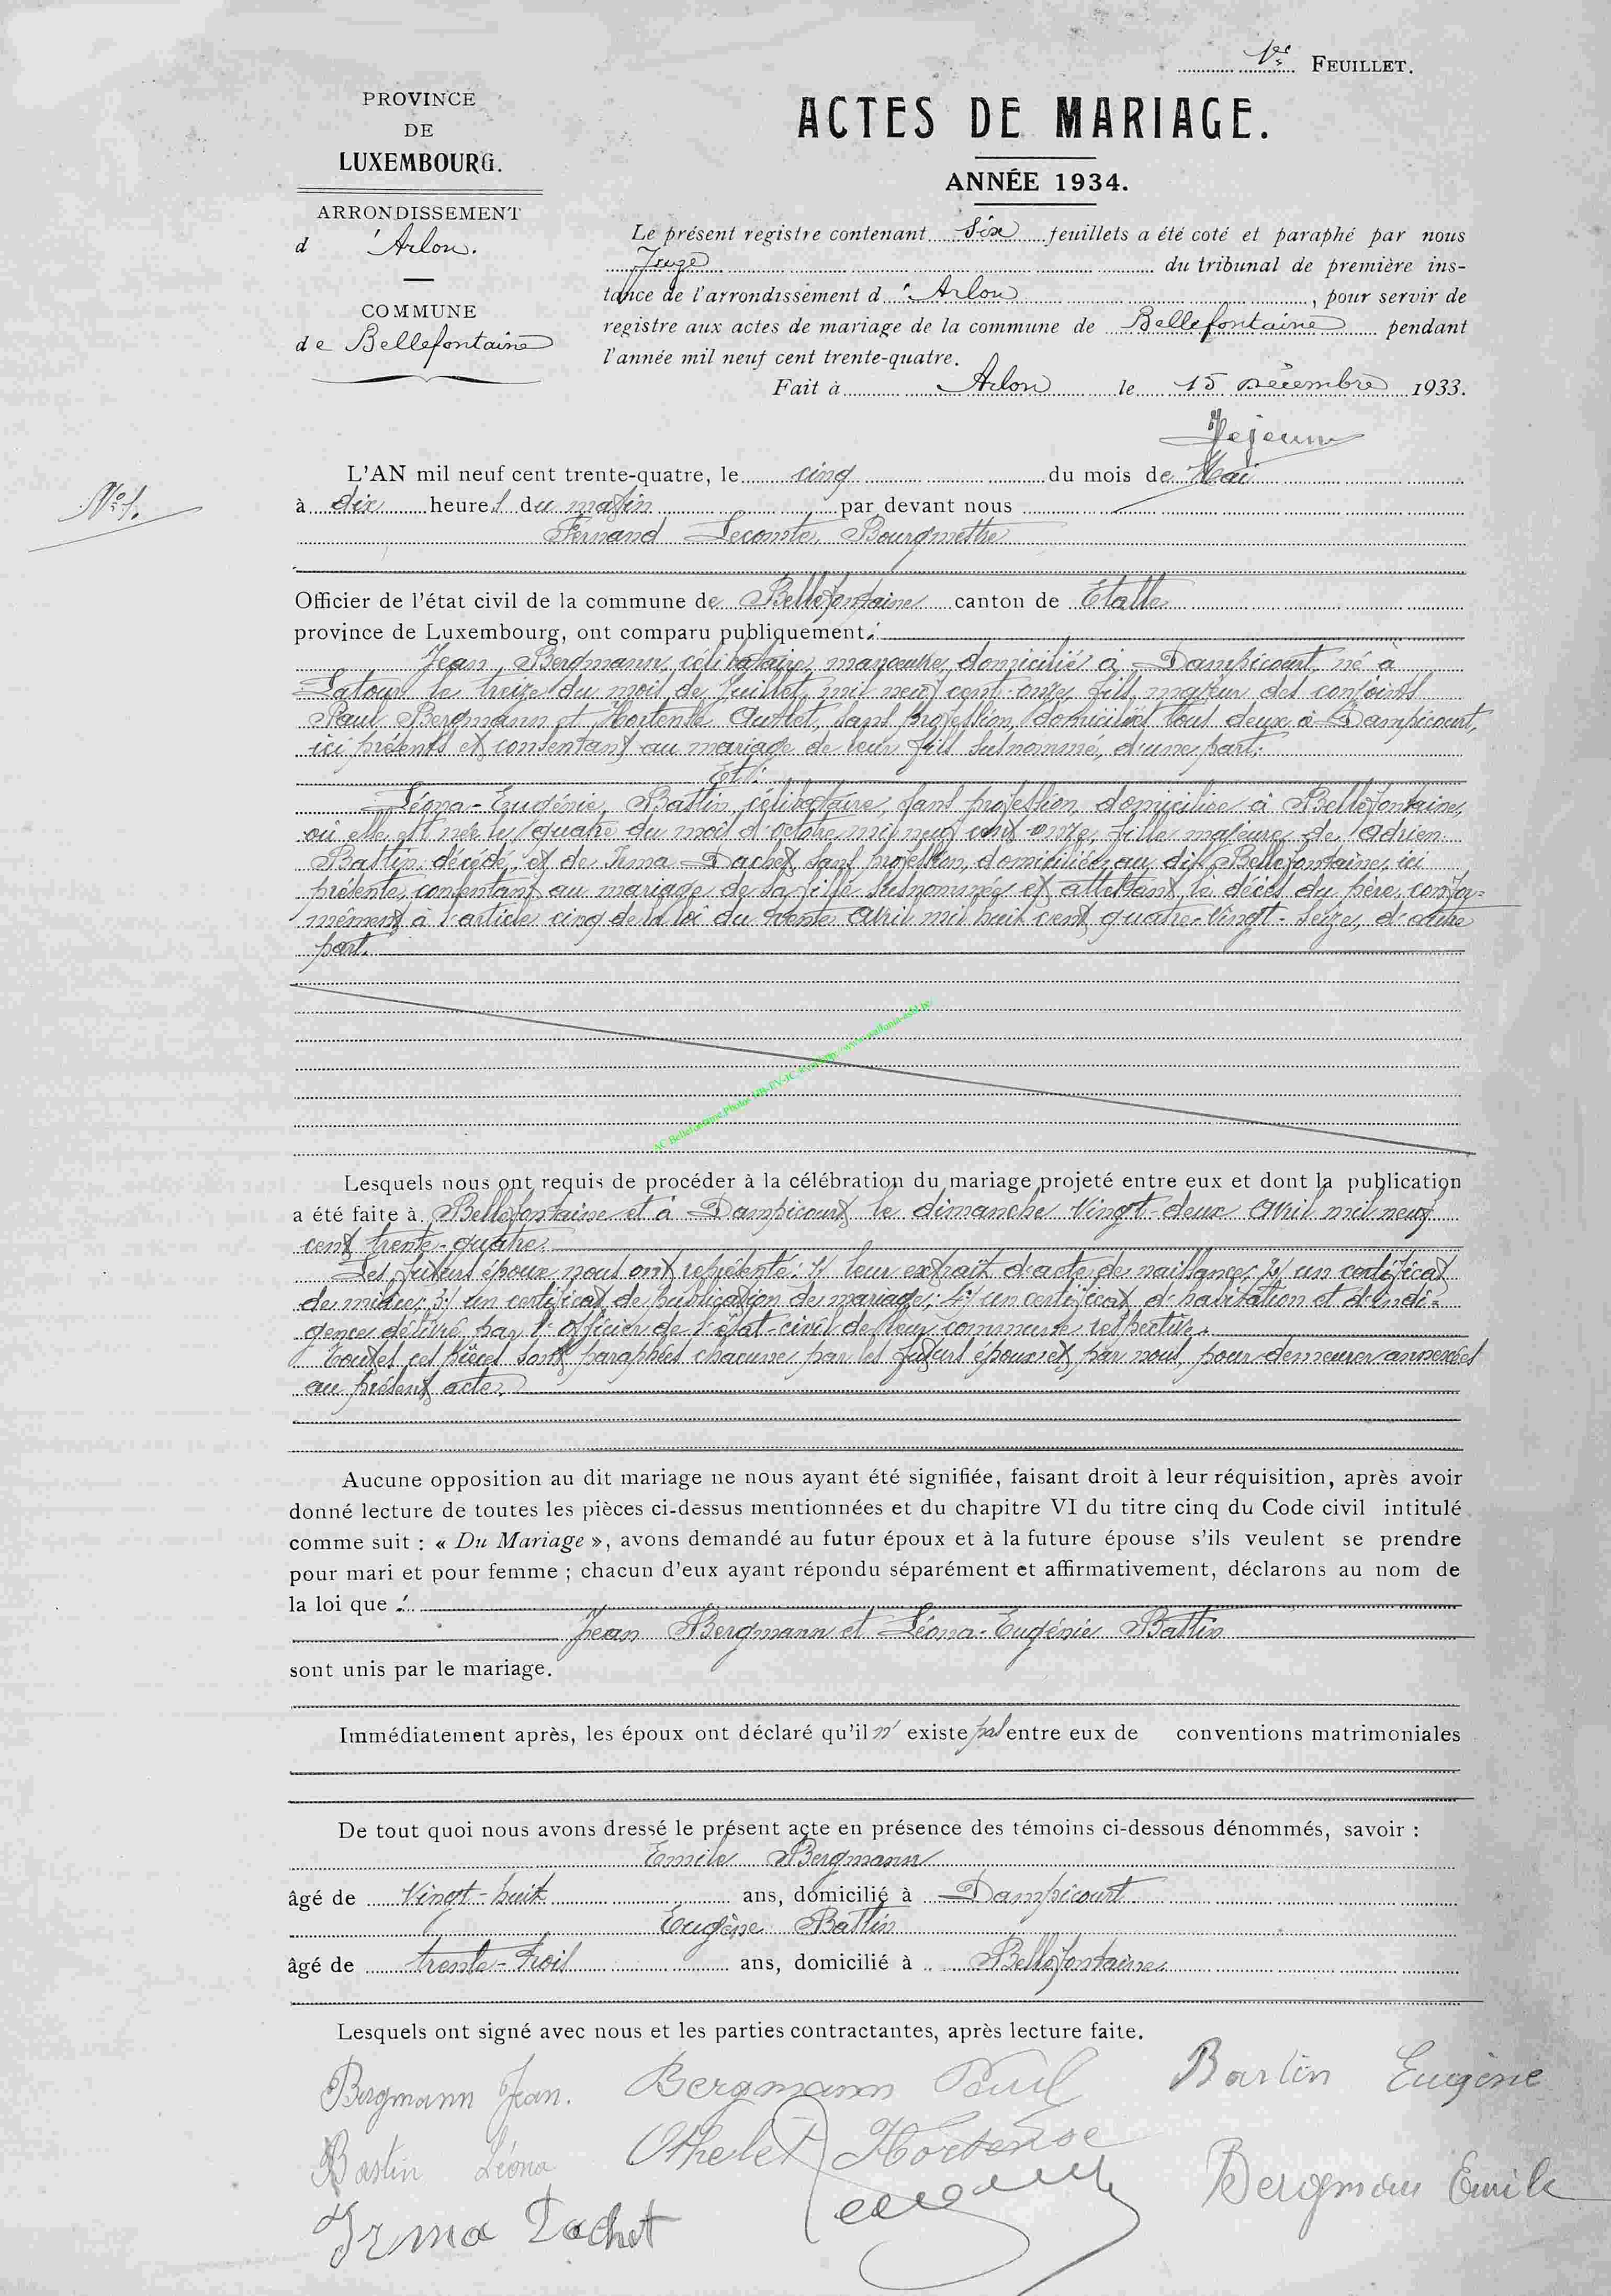 1er FEUILLET.
PROVINCE
DE
LUXEMBOURG.
ARRONDISSEMENT
d'Arlon.
COMMUNE
de Bellefontaine
ACTES DE MARIAGE.
ANNÉE 1934.
Le présent registre contenant six feuillets a été coté et paraphé par nous
Juge du tribunal de première ins-
tance de l'arrondissement d'Arlon, pour servir de
registre aux actes de mariage de la commune de Bellefontaine pendant
l'année mil neuf cent trente-quatre.
Fait à Arlon le 15 Décembre 1933.
N° 1.
L'AN mil neuf cent trente-quatre, le cinq du mois de Mai
à dix heures du matin par devant nous
Fernand Lecomte, Bourgmettre
Officier de l'état civil de la commune de Bellefontaine canton de Etalle
province de Luxembourg, ont comparu publiquement:
Jean Bergmann, célibataire, manœuvre, domicilié à Dampicourt, né à
Latour le treize du mois de Juillet mil neuf cent onze, fils majeur des conjoints
Paul Bergmann et Hortense sans profession, domiciliés tous deux à Dampicourt,
ici présents et consentant au mariage de leur fils susnommé, d'une part.
Et:
Léona-Eugénie Bastin, célibataire, sans profession, domiciliée à Bellefontaine,
où elle est née le quatre du mois d'octobre mil neuf cent onze, fille majeure de Adrien
Bastin, décédé, et de Irma Dachet, sans profession, domiciliée au dit Bellefontaine, ici
présente, consentant au mariage de sa fille susnommée et attestant le décès du père, confor-
mément à l'article cinq de la loi du trente Avril mil huit cent quatre-vingt-seize, d'autre
part.
AC Bellefontaine Photos HB-EV-JC www.wallonia-asbl.be
Lesquels nous ont requis de procéder à la célébration du mariage projeté entre eux et dont la publication
a été faite à Bellefontaine et à Dampicourt le dimanche vingt-deux Avril mil neuf
cent trente-quatre.
Les futurs époux nous ont représenté: 1/ leur extrait d'acte de naissance; 2/ un certificat
de milice; 3/ un certificat de publication de mariage; 4/ un certificat d'habitation et d'indi-
gence délivré par l'officier de l'état-civil de leur commune respective.
Toutes ces pièces sont paraphées chacune par les futurs époux et par nous, pour demeurer annexées
au présent acte.
Aucune opposition au dit mariage ne nous ayant été signifiée, faisant droit à leur réquisition, après avoir
donné lecture de toutes les pièces ci-dessus mentionnées et du chapitre VI du titre cinq du Code civil intitulé
comme suit : « Du Mariage », avons demandé au futur époux et à la future épouse s'ils veulent se prendre
pour mari et pour femme ; chacun d'eux ayant répondu séparément et affirmativement, déclarons au nom de
la loi que :
Jean Bergmann et Léona-Eugénie Bastin
sont unis par le mariage.
Immédiatement après, les époux ont déclaré qu'il n'existe pas entre eux de conventions matrimoniales
De tout quoi nous avons dressé le présent acte en présence des témoins ci-dessous dénommés, savoir :
Emile Bergmann
âgé de vingt-huit ans, domicilié à Dampicourt
Eugène Bastin
âgé de trente-trois ans, domicilié à Bellefontaine
Lesquels ont signé avec nous et les parties contractantes, après lecture faite.
Bergmann Jean. Bergmann Paul Bastin Eugène
Bastin Léona Othelet Hortense Bergman Emile
Irma Dachet